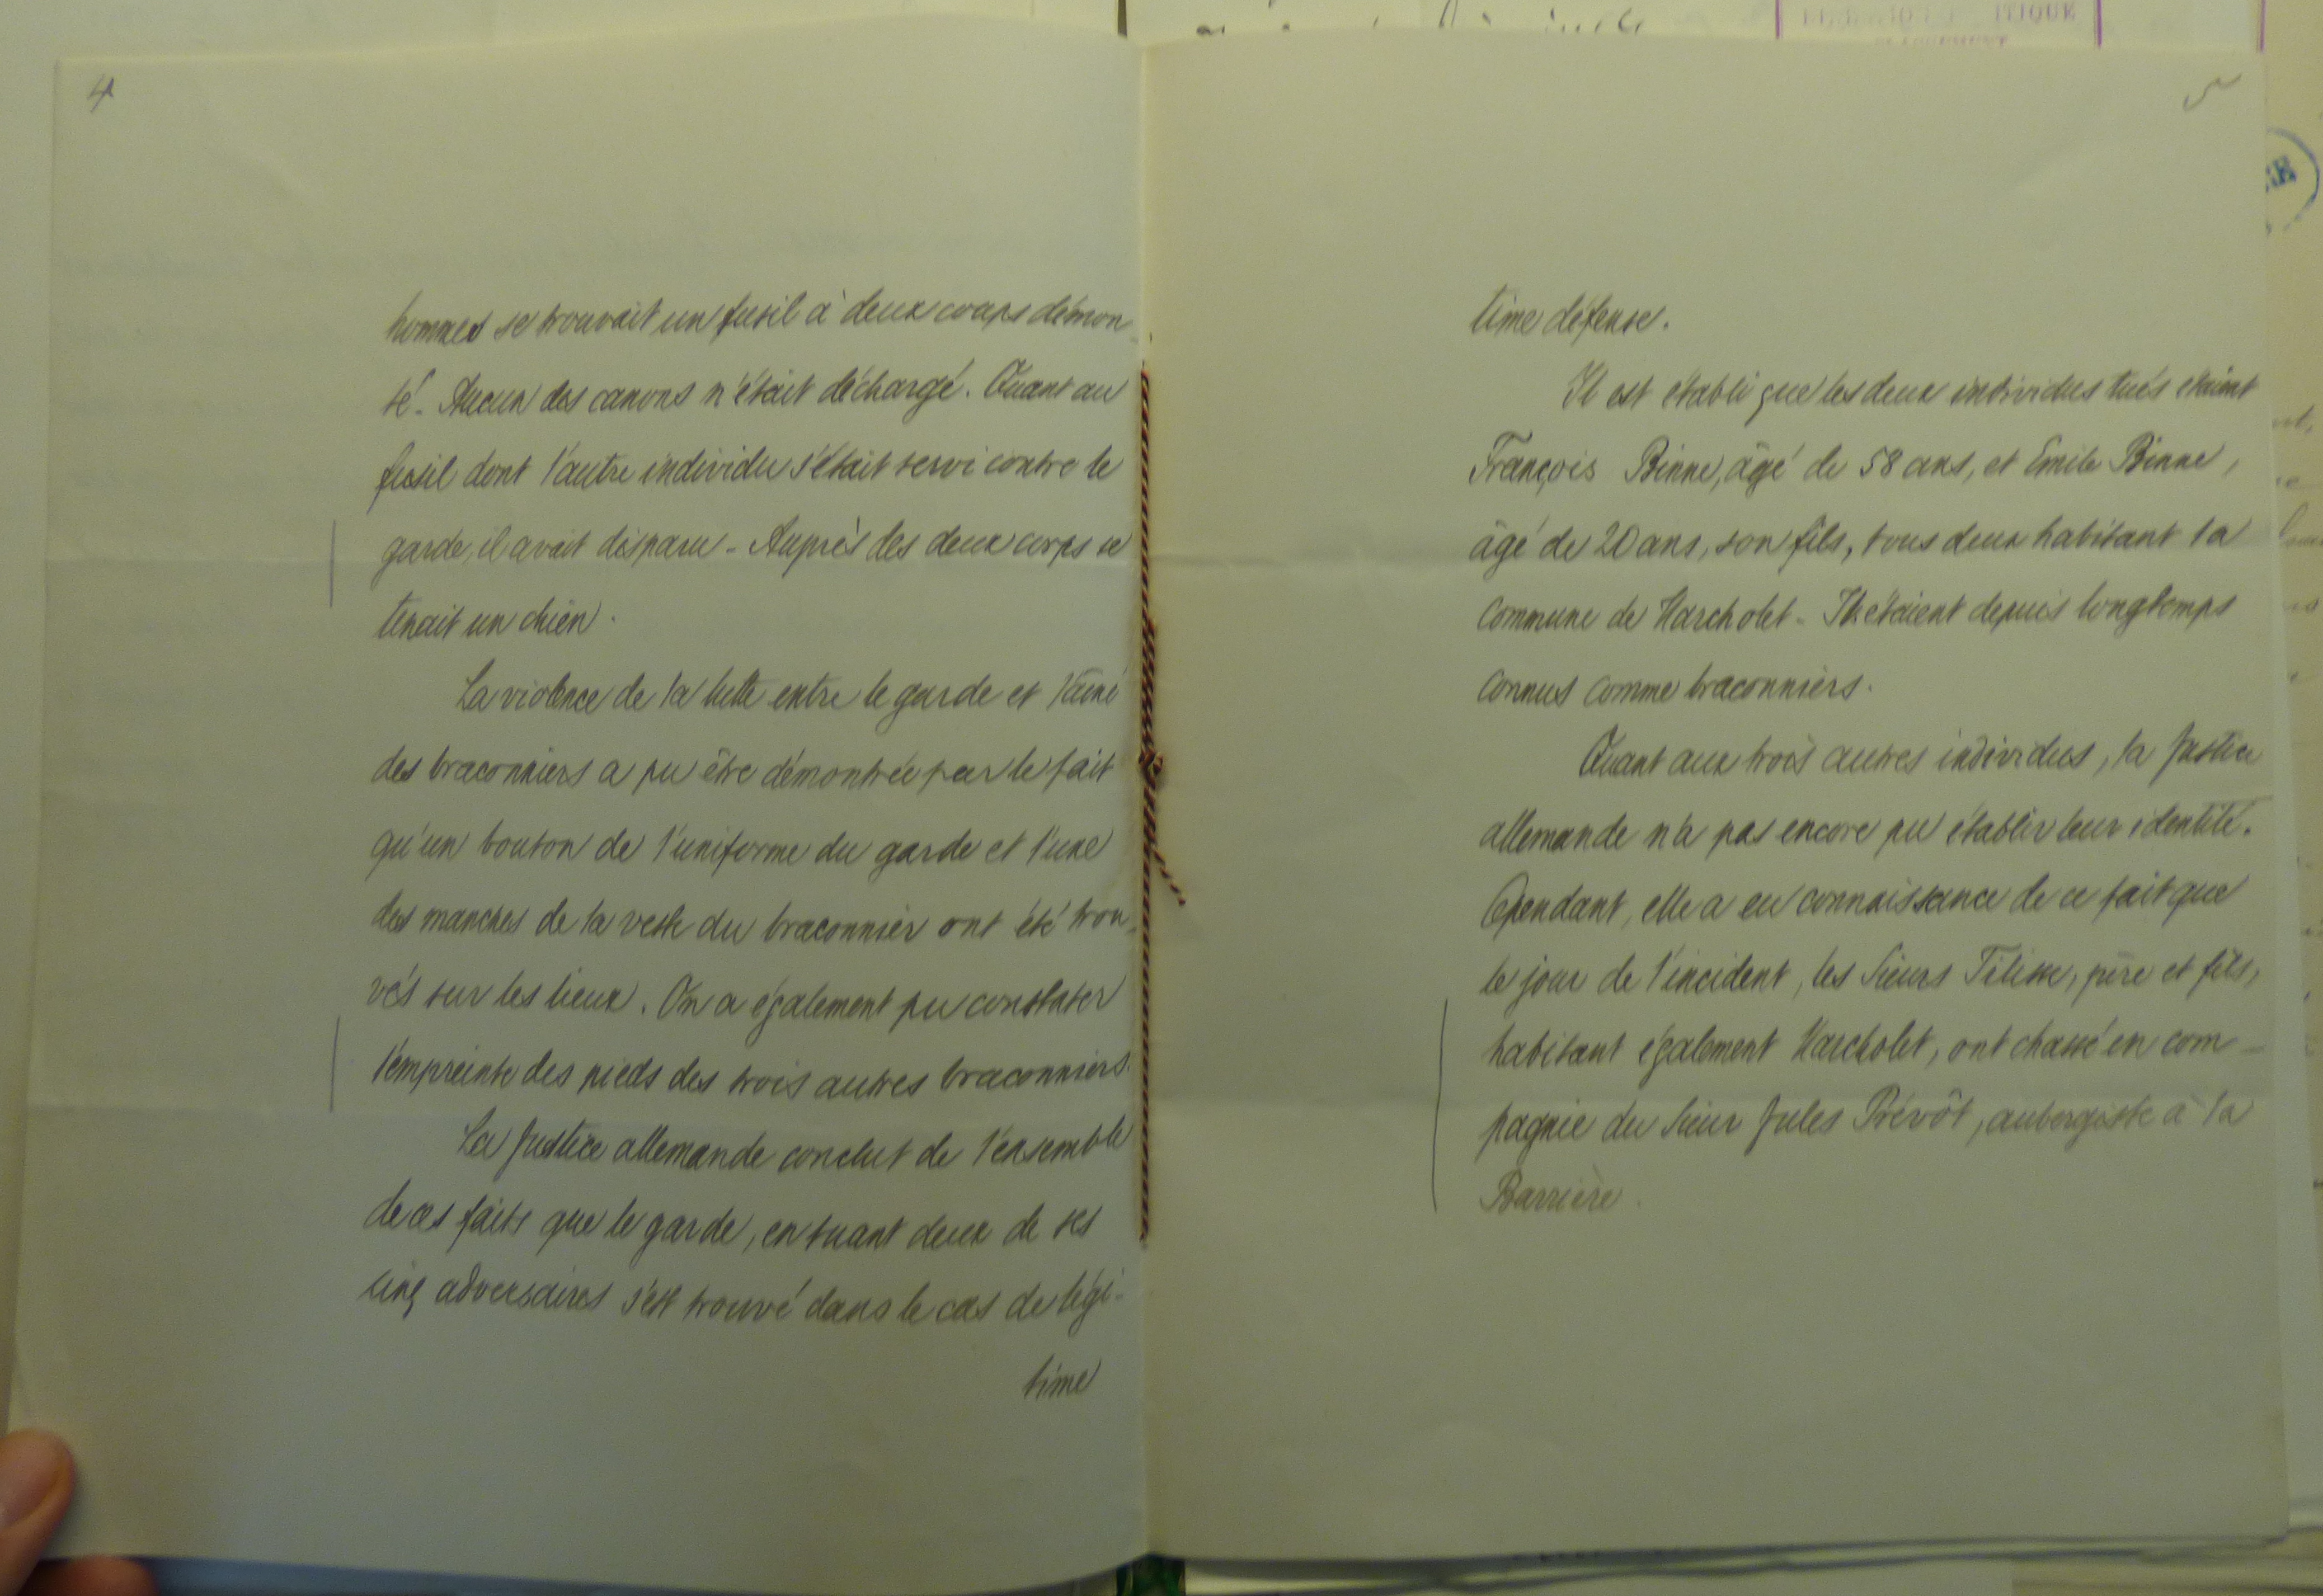 4
hommes se trouvait un fusil à deux coups démon-
té. Aucun des canons n'était déchargé. Quant au
fusil dont l'autre individu s'était servi contre le
garde, il avait disparu - Auprès des deux corps se
tenait un chien.
La violence de la lutte entre le garde et l'aîné
des braconniers a pu être démontrée par le fait
qu'un bouton de l'uniforme du garde et l'une
des manches de la veste du braconnier ont été trou-
vés sur les lieux. On a également pu constater
l'empreinte des pieds des trois autres braconniers.
La Justice allemande conclut de l'ensemble
de ces faits que le garde, en tuant deux de ses
cinq adversaires s'est trouvé dans le cas de légi-
time
5
time défense.
Il est établi que les deux individus tués étaient
François Binne, âgé de 58 ans, et Emile Binne,
âgé de 20 ans, son fils, tous deux habitant la
Commune de Harcholet - Ils étaient depuis longtemps
connus comme braconniers.
Quant aux trois autres individus, la Justice
allemande n'a pas encore pu établir leur identité.
Cependant, elle a eu connaissance de ce fait que
le jour de l'incident, les Sieurs, père et fils,
habitant également Harcholet, ont chassé en com-
pagnie du Sieur Jules Prévôt, aubergiste à la
Barrière.
ITIQUE